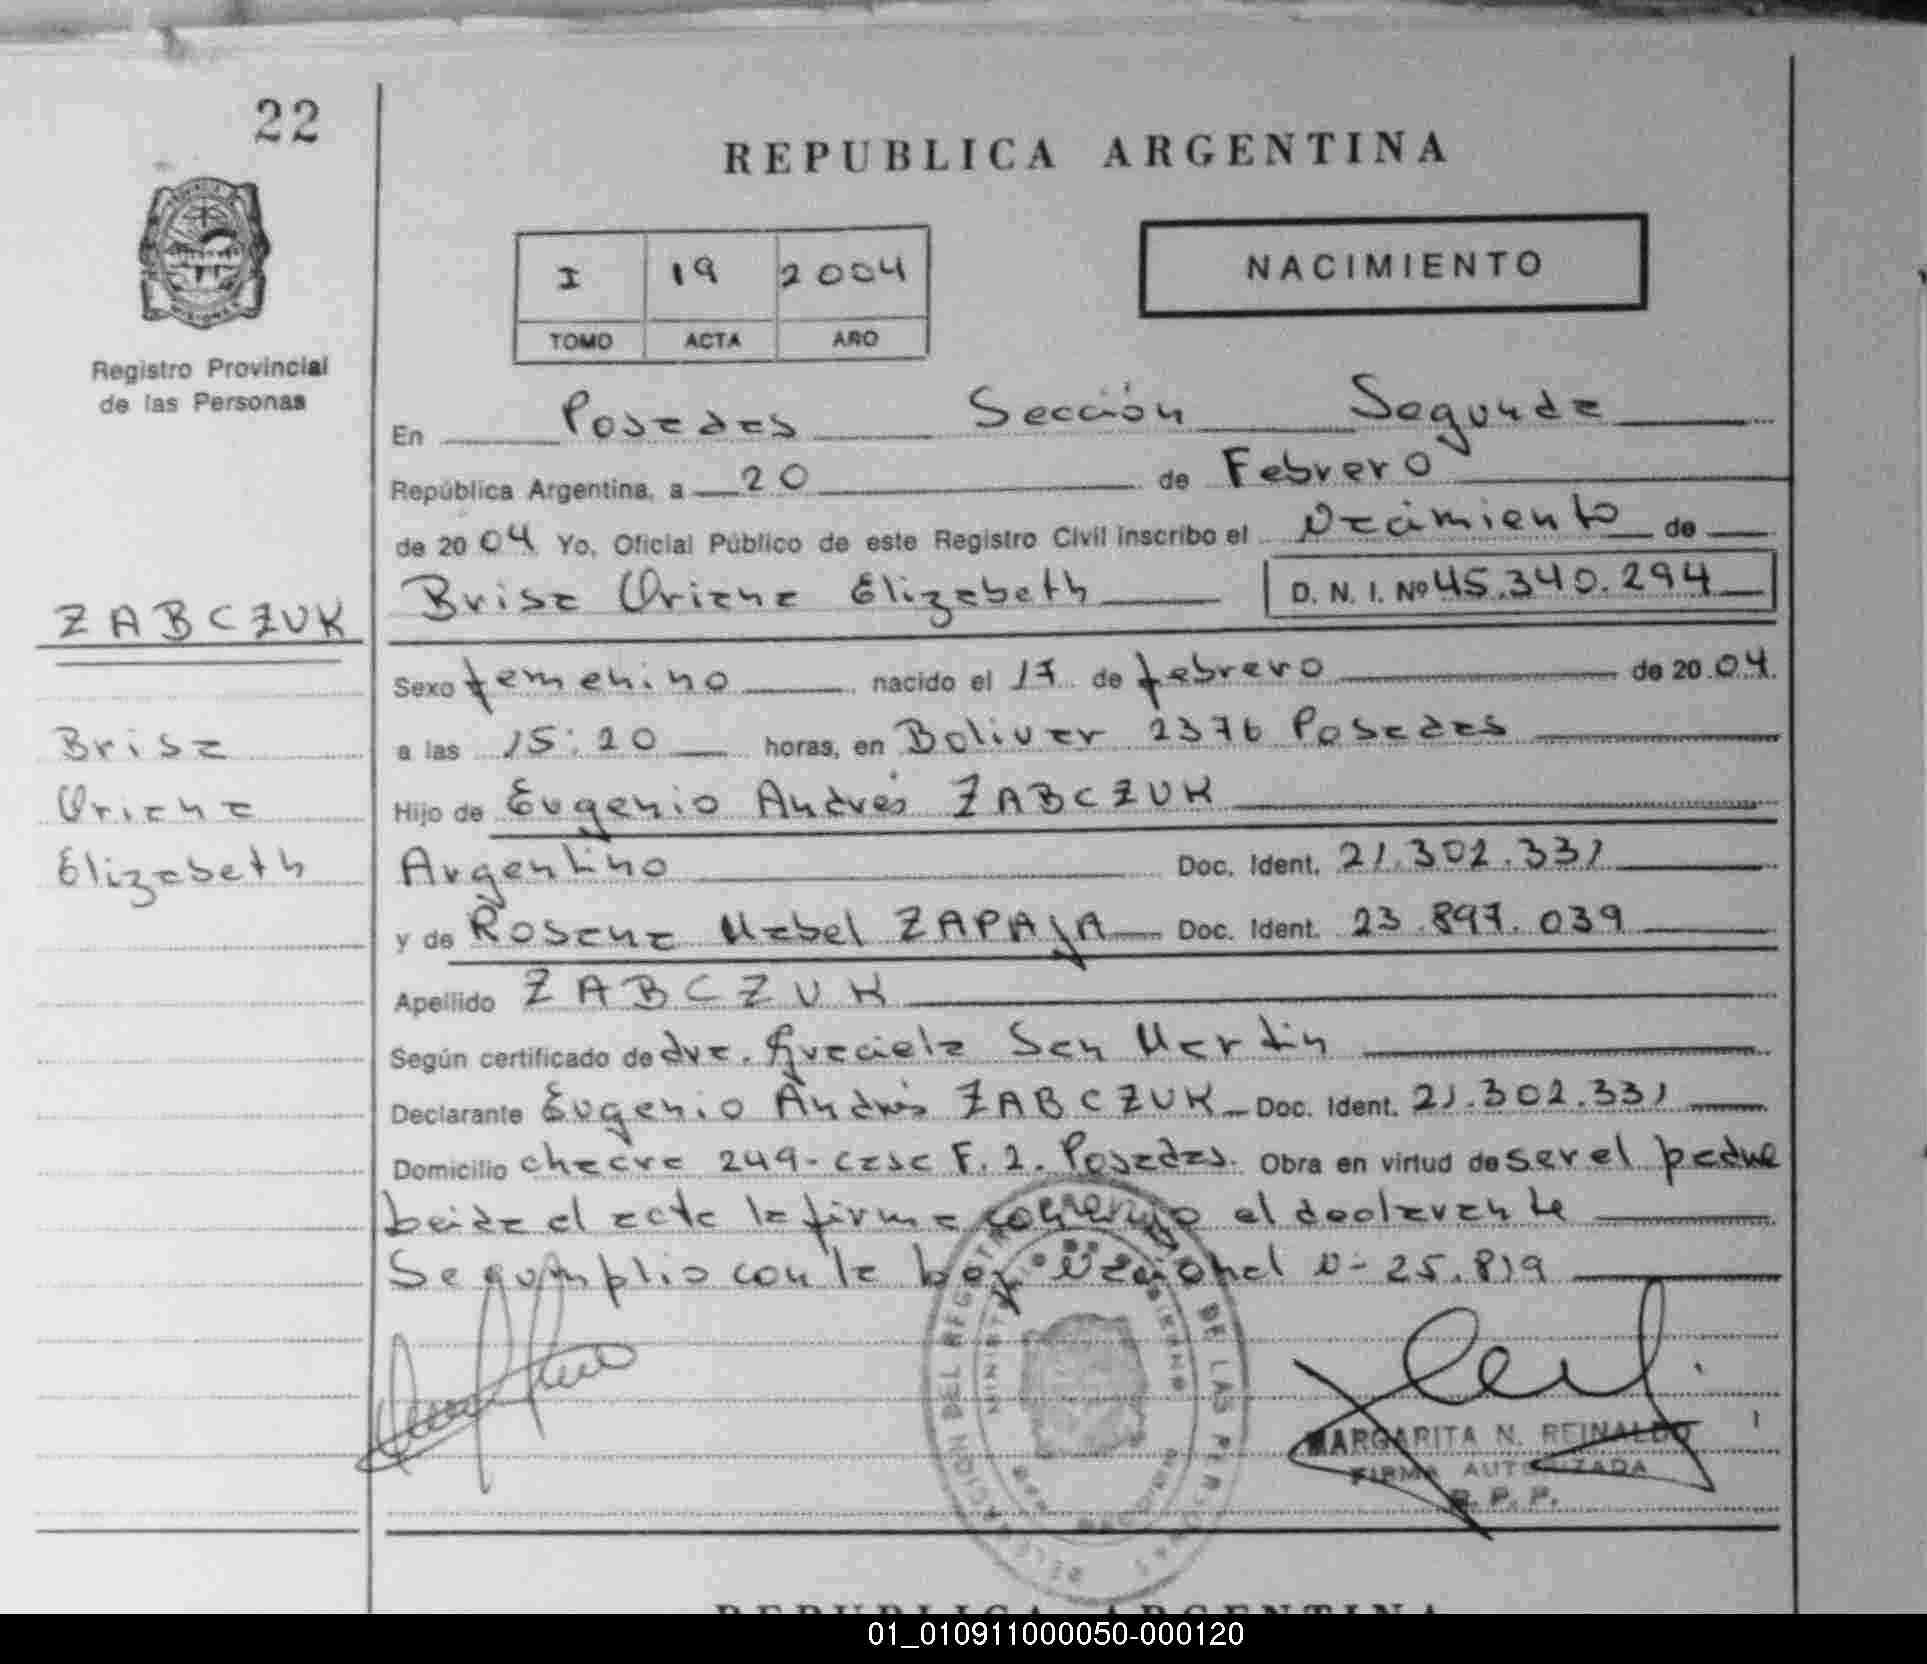 22
REPUBLICA ARGENTINA
I 19 2004
TOMO ACTA AÑO
NACIMIENTO
Registro Provincial
de las Personas
En Posadas Sección Segunda
República Argentina, a 20 de Febrero
de 2004 Yo, Oficial Público de este Registro Civil inscribo el Nacimiento de
Brisa Oriana Elizabeth D. N. I. Nº 45.340.294
ZABCZUK
Sexo femenino nacido el 17 de febrero de 2004.
a las 15:20 horas, en Bolivar 2376 Posadas
Brisa
Oriana
Elizabeth
Hijo de Eugenio Andrés ZABCZUK
Argentino Doc. Ident. 21.302.331
y de Rosana Mabel ZAPAJA Doc. Ident. 23.897.039
Apellido ZABCZUK
Según certificado de dra. Graciela San Martin
Declarante Eugenio Andrés ZABCZUK Doc. Ident. 21.302.331
Domicilio chacra 249- casa F. 2. Posadas. Obra en virtud de ser el padre
Leida el acta la firma conmigo el declarante
Se cumplio con la Ley Nacional N- 25.819
DELEGACION DEL REGISTRO DE LAS PERSONAS
MARGARITA N. REINALDO
FIRMA AUTORIZADA
R. P. P.
REPUBLICA ARGENTINA
01_010911000050-000120